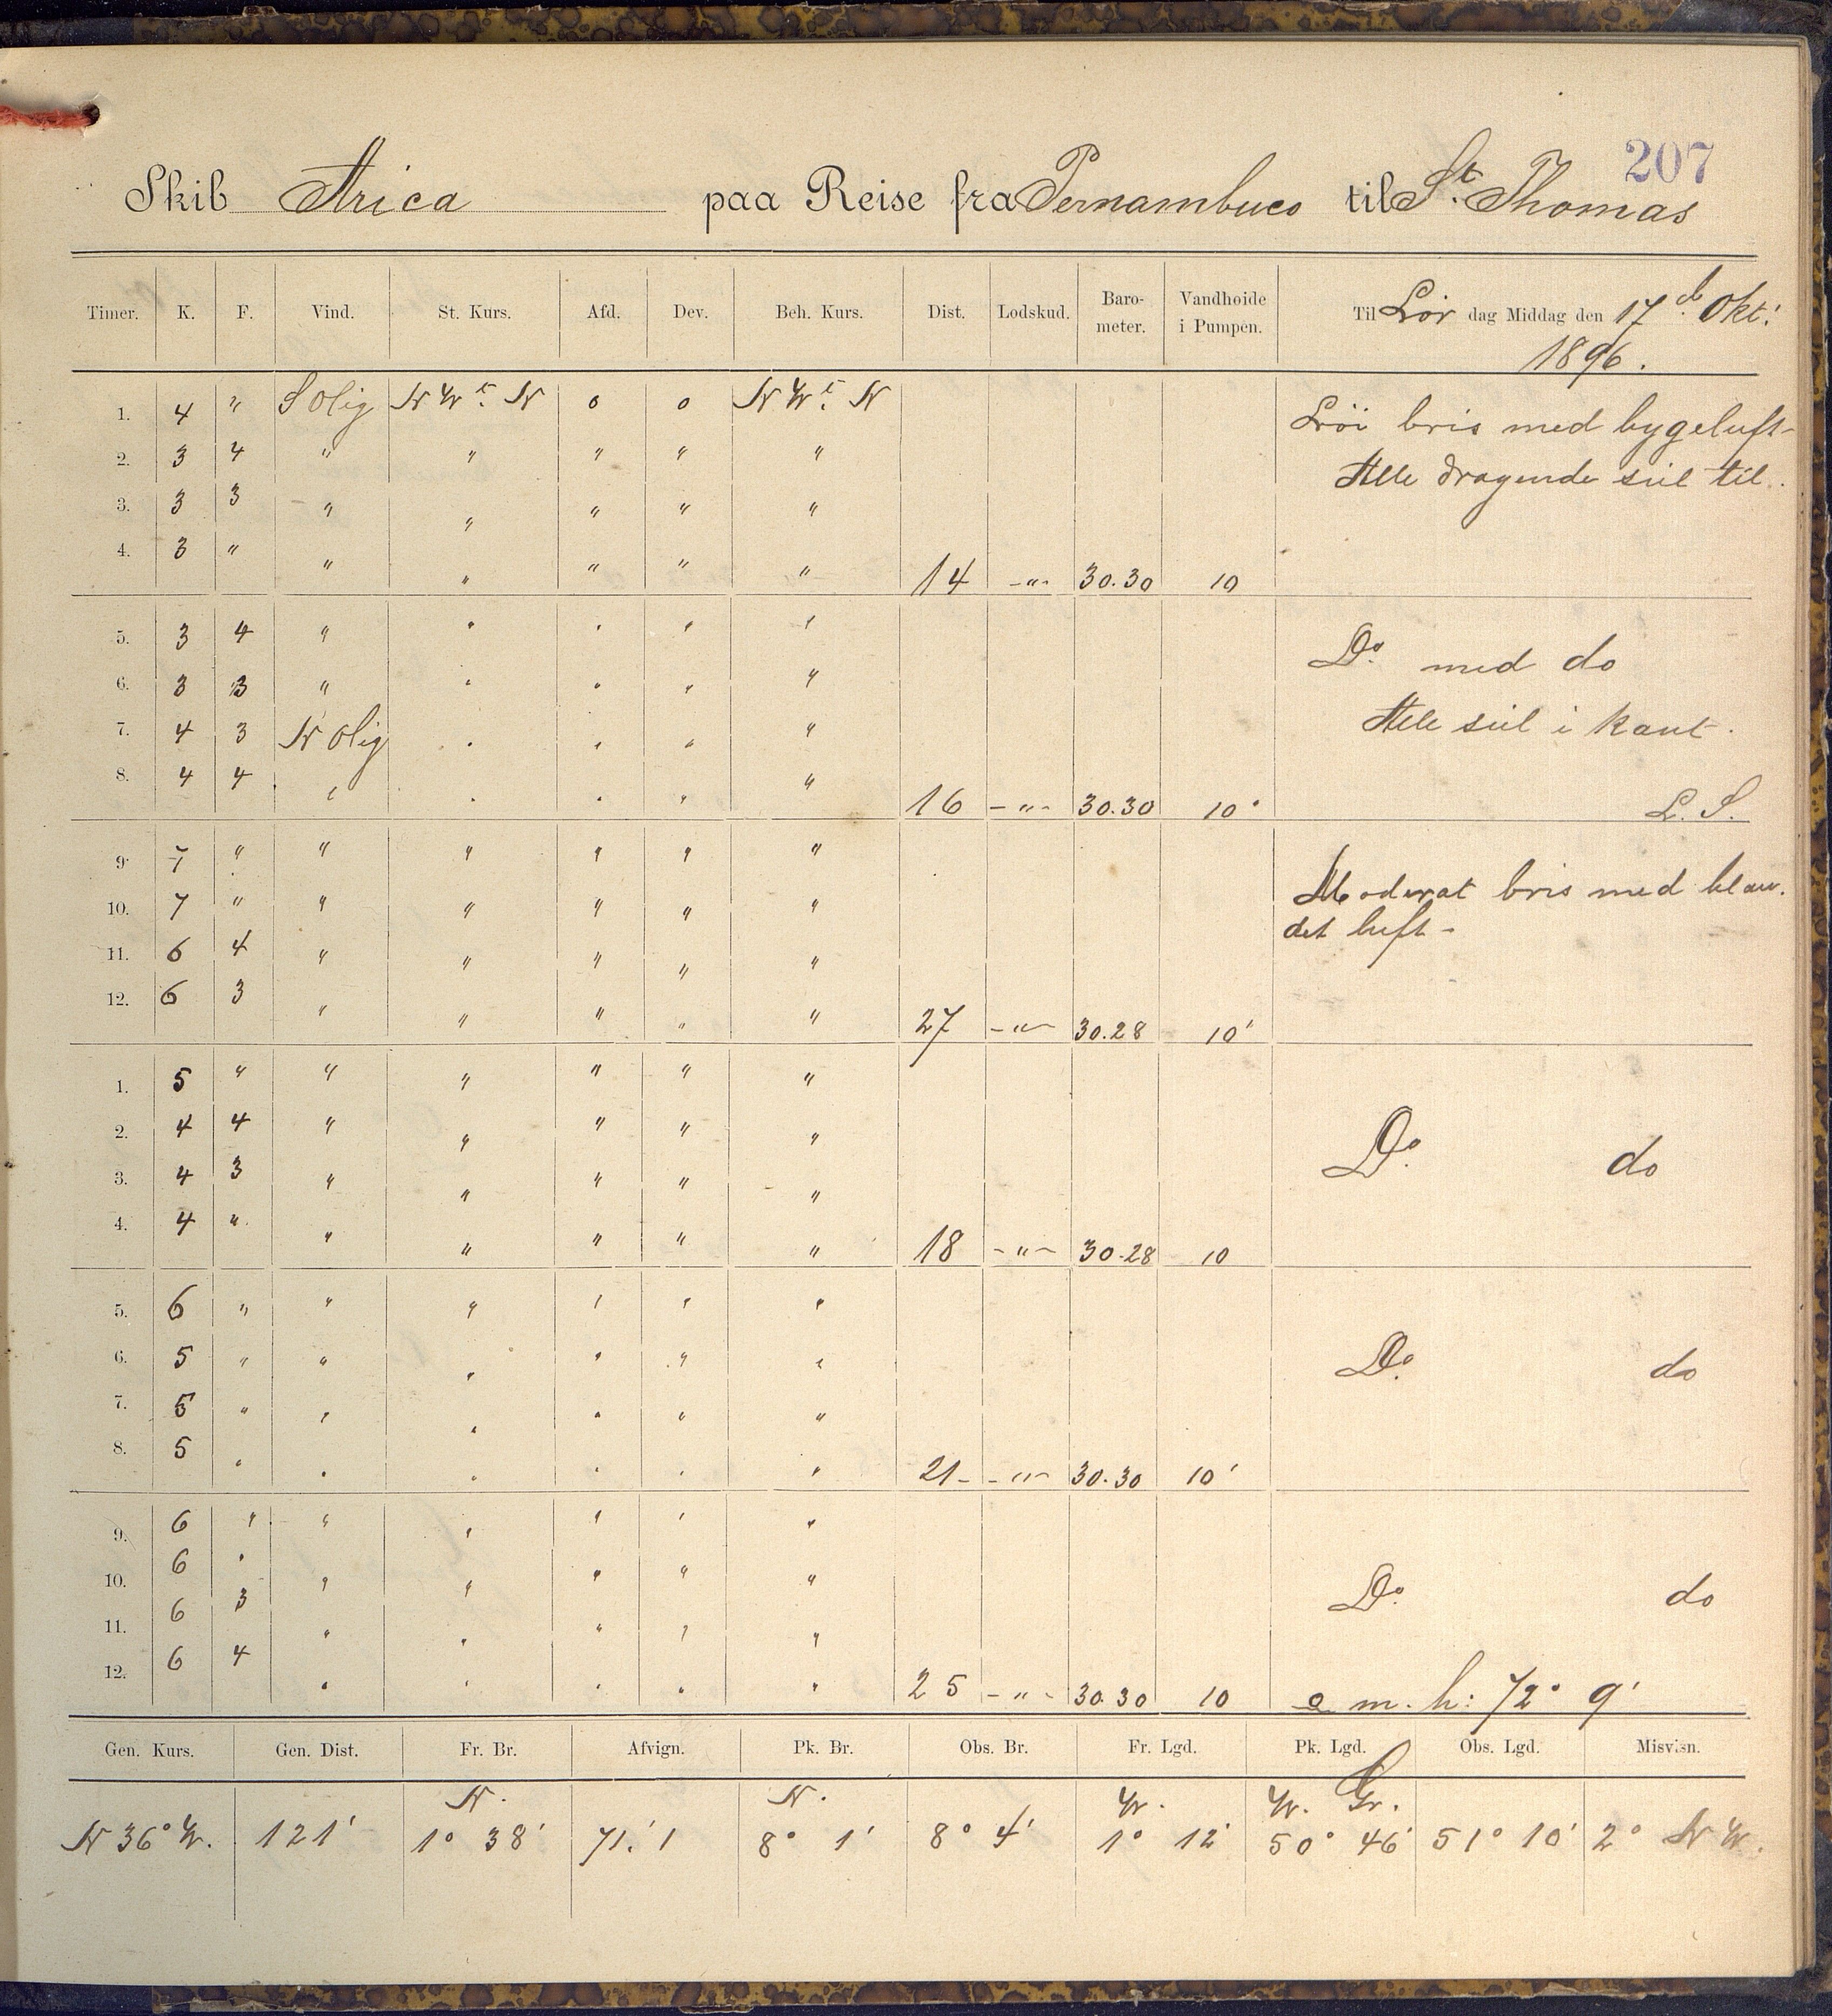 207
Skib Arica paa Reise fra Pernambuco til St. Thomas
Timer. K. F. Vind. St. Kurs. Afd. Dev. Beh. Kurs. Dist. Lodskud. Baro-meter. Vandhøide i Pumpen. Til Lør dag Middag den 17 d. Okt:
1896.
1. 4 " S Olig N W t. N 0 0 N W t. N Løi bris med bygeluft-
2. 3 4 " " " " " Alle dragende seil til.
3. 3 3 " " " " "
4. 3 " " " " " " 14 -"- 30.30 10
5. 3 4 " " " " " Do. med do
6. 3 3 " " " " "
7. 4 3 N Olig " " " " Alle seil i kant.
8. 4 4 " " " " " 16 -"- 30.30 10" L. S.
9. 7 " " " " " " Moderat bris med blan-
10. 7 " " " " " " det luft-
11. 6 4 " " " " "
12. 6 3 " " " " " 27 -"- 30.28 10'
1. 5 " " " " " "
2. 4 4 " " " " " Do. do
3. 4 3 " " " " "
4. 4 " " " " " " 18 -"- 30.28 10
5. 6 " " " " " "
6. 5 " " " " " " Do. do
7. 5 " " " " " "
8. 5 " " " " " " 21- -"- 30.30 10'
9. 6 " " " " " "
10. 6 " " " " " " Do. do
11. 6 3 " " " " "
12. 6 4 " " " " " 25 -"- 30.30 10 o m. h: 72° 9'
Gen. Kurs. Gen. Dist. Fr. Br. Afvign. Pk. Br. Obs. Br. Fr. Lgd. Pk. Lgd. Obs. Lgd. Misvisn.
N. N. W. W. Gr.
N 36° W. 121' 1° 38' 71.'1 8° 1' 8° 4' 1° 12' 50° 46' 51° 10' 2° N W.